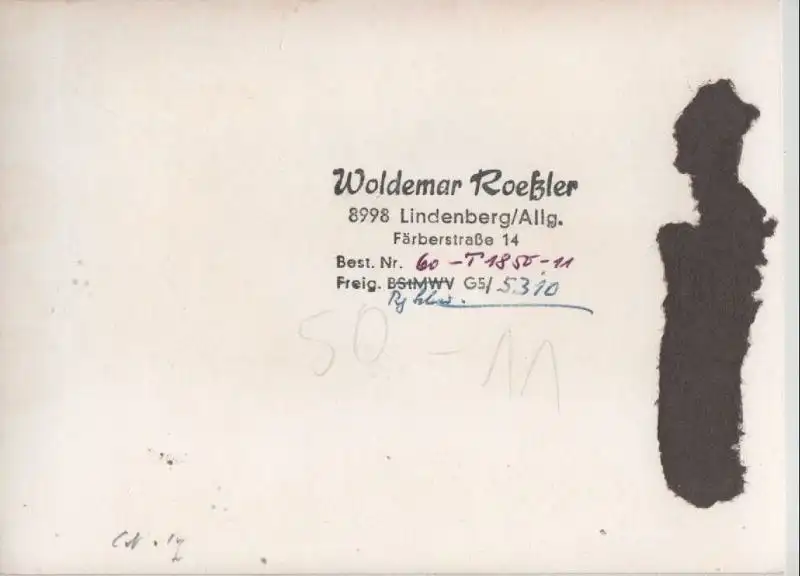 Woldemar Roeßler
8998 Lindenberg/Allg.
Färberstraße 14
Best. Nr. 60-T1850-11
Freig. BStMWV G5/5310
50-11